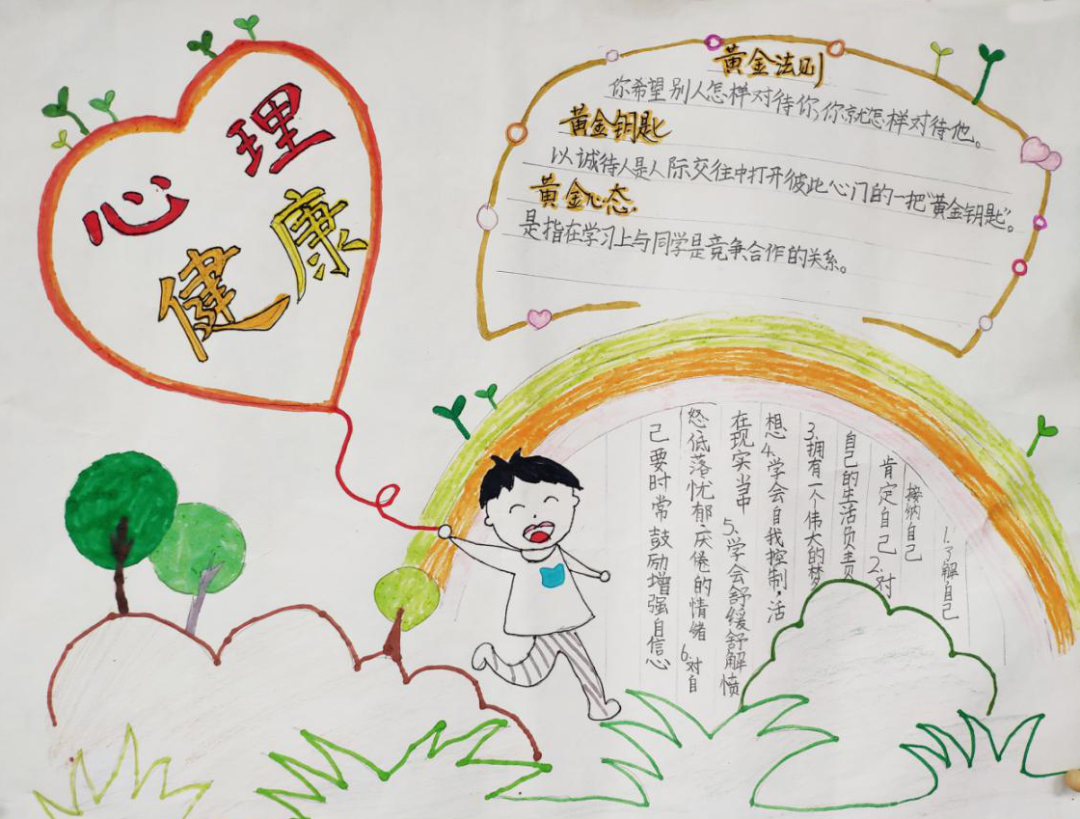 心理
健康
黄金法则
你希望别人怎样对待你,你就怎样对待他。
黄金钥匙
以诚待人是人际交往中打开彼此心门的一把“黄金钥匙”。
黄金心态
是指在学习上与同学是竞争合作的关系。
1.了解自己
接纳自己
肯定自己2.对
自己的生活负责
3.拥有一个伟大的梦
想4.学会自我控制,活
在现实当中 5.学会舒缓舒解愤
怒、低落忧郁、厌倦的情绪 6.对自
己要时常鼓励增强自信心